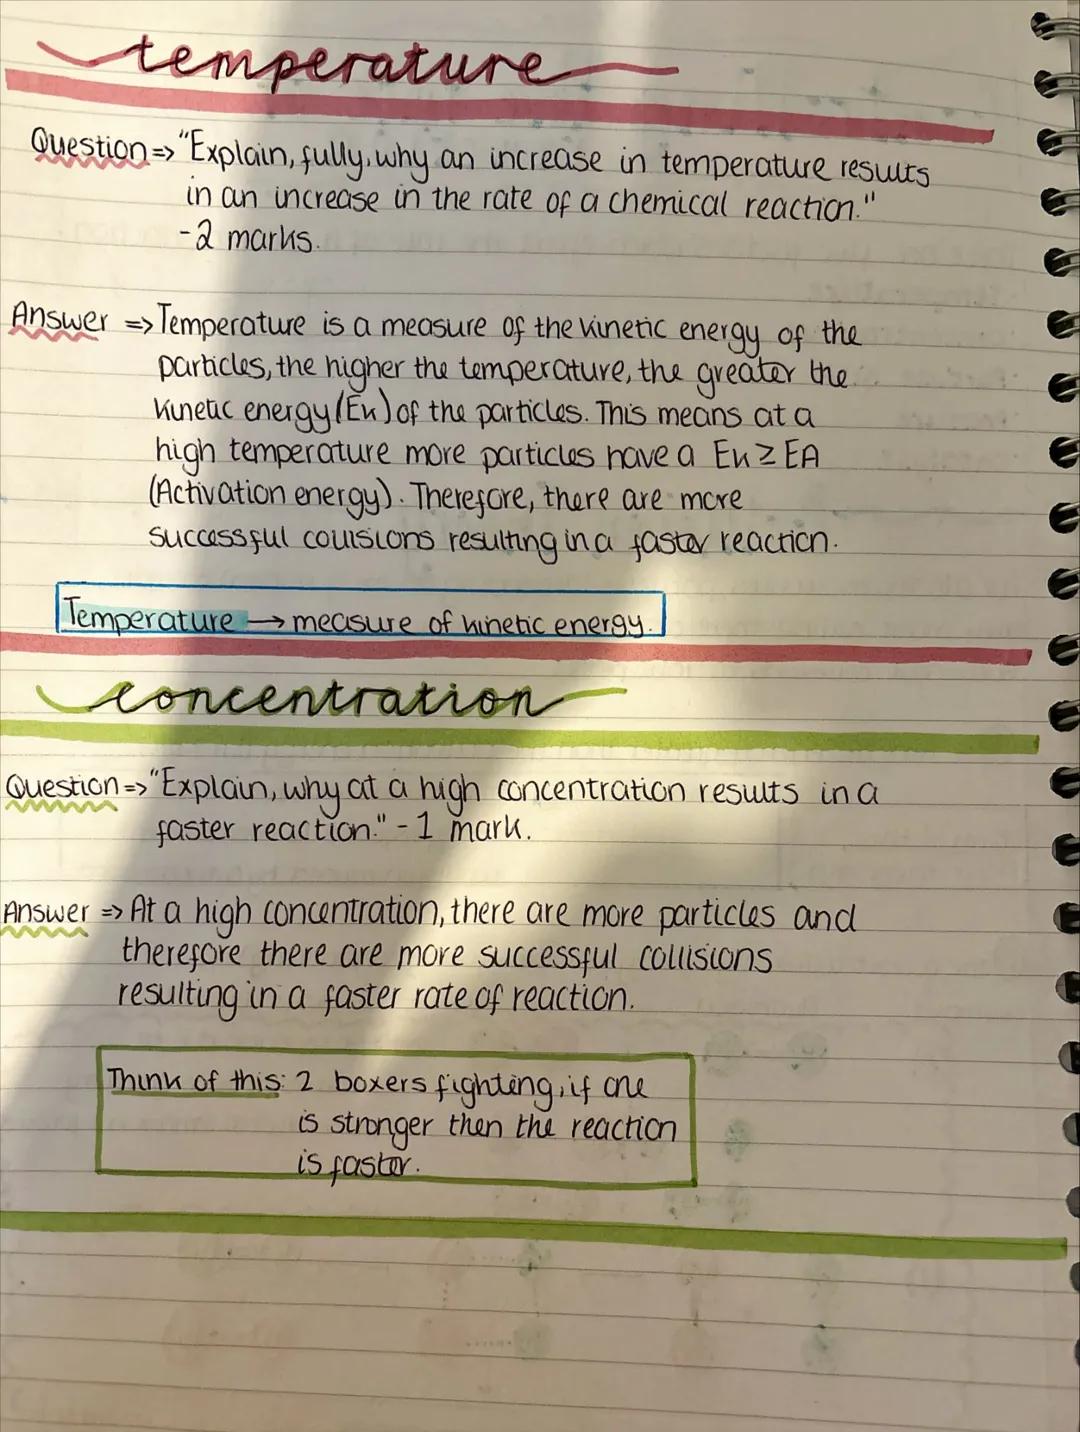 temperature
Question => "Explain, fully, why an increase in temperature results
in an increase in the rate of a chemical reaction."
- 2 marks.
Answer => Temperature is a measure of the kinetic energy of the
particles, the higher the temperature, the greater the
kinetic energy (Ek) of the particles. This means at a
high temperature more particles have a Ek ≥ EA
(Activation energy). Therefore, there are more
successful collisions resulting in a faster reaction.
Temperature → measure of kinetic energy.
concentration
Question => "Explain, why at a high concentration results in a
faster reaction." - 1 mark.
Answer => At a high concentration, there are more particles and
therefore there are more successful collisions
resulting in a faster rate of reaction.
Think of this: 2 boxers fighting, if one
is stronger then the reaction
is faster.